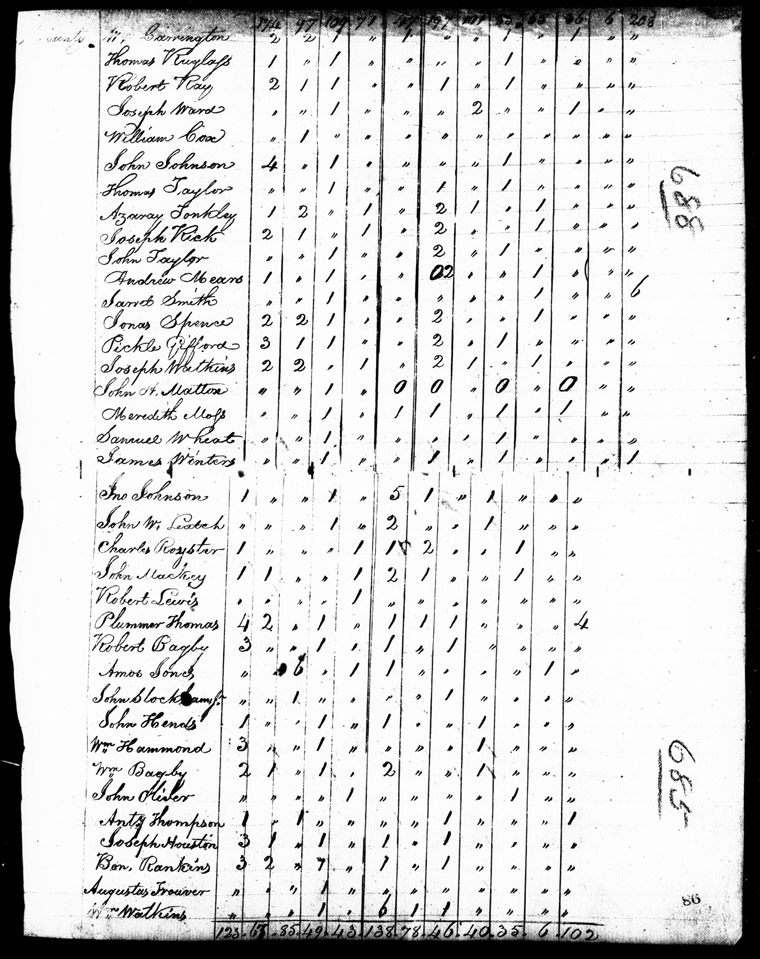 174 97 109 71 107 197 101 53 65 36 6 208
Carrington 2 2 1 " 1 " " 1 " 1 " "
Thomas 1 " 1 " " " " 1 " " " "
Robert Ray 2 1 1 " " 1 " 1 " " " "
Joseph Ward " " 1 " " " 2 " " 1 " "
William Cox " 1 " " " " " " " " " "
John Johnson 4 " 1 " " " " 1 " " " "
Thomas Taylor " " 1 " " 1 " 1 " " " "
Azaray Tonkley 1 2 " 1 " 2 1 " 1 " " "
Joseph Kick 2 1 " 1 " 2 " " 1 " " "
John Taylor " " 1 " " 2 " 1 " " " "
Andrew Mears 1 " 1 " " 02 " " 1 " " "
Jarret Smith " " 1 " " " " " 1 " " 6
Jonas Spence 2 2 1 " " 2 " " 1 " " "
Pickle Gifford 3 1 1 " " 2 " 1 " " " "
Joseph Watkins 2 2 " 1 " 2 1 " 1 " " "
John H. Matton " " 1 " 0 0 " 0 " 0 " "
Meredith Moss " " 1 " 1 1 " 1 " 1 " "
Samuel Wheat " " 1 " " " " 1 " " " "
James Winters " " 1 " " 1 " 1 " " " 1
688
Jno Johnson 1 " " " 1 " 5 1 " 1 " " "
John W. Leatch " " " 1 " 2 " " 1 " " "
Charles Royster 1 " " " 1 1 2 " " 1 " "
John Mackey 1 1 " " 1 2 1 " " 1 " "
Robert Lewis " " " " 1 " " " " " " "
Plummer Thomas 4 2 " 1 " 1 1 1 " " " 4
Robert Bagby 3 " " 1 " 1 " 1 " " " "
Amos Jones " " 6 " 1 1 " " " " 1 "
John " " 1 " " " " 1 " " " "
John Hends 1 " " 1 " 1 " " 1 " " "
Wm Hammond 3 " " 1 " " " " 1 " " "
Wm Bagby 2 1 " 1 " 2 " " 1 " " "
John Oliver " " " " 1 " " " " 1 " "
Anty Thompson 1 " 1 " " " " 1 " " " 1
Joseph Houston 3 1 " 1 " 1 " 1 " " " "
Ben. Rankins 3 2 " 1 " 1 " 1 " " " "
Augustas Trouver " " " 1 " " " " " " " "
Wm Watkins " " " 1 " 6 1 1 " " " "
123. 63. 85. 49. 43. 138. 78. 46. 40. 35. 6. 102
685
86